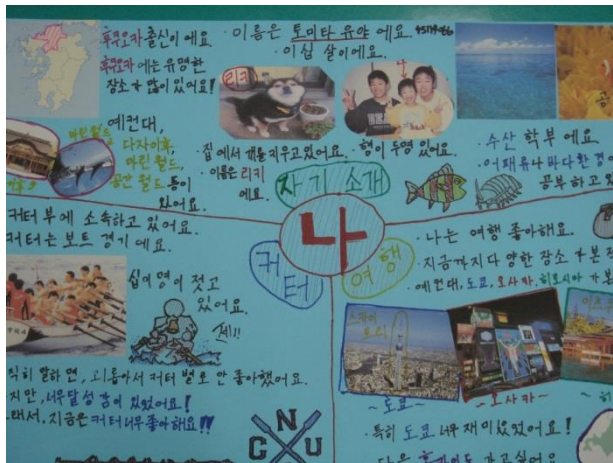 후쿠오카 출신이에요
후쿠오카에는 유명한
장소가 많이 있어요!
예컨대,
마린 월드
다자이후,
마린 월드,
공간 월드 등이
있어요.
이름은 토미타 유야 에요.
이십 살이에요.
리키
집에서 개를 키우고있어요.
이름은 리키
에요.
형이 두명 있어요.
수산 학부 에요.
어패류나 바다환경
공부하고 있
자기소개
나
커터
여행
커터 부에 소속하고 있어요.
커터는 보트 경기 에요.
십이 명이 젓고
있어요.
직히 말하면, 괴롭아서 커터 별로 안 좋아했어요.
지만, 너무 달성 감이 있었어요!
래서, 지금은 커터 너무 좋아해요!!
C N U
나는 여행 좋아해요.
지금까지 다양한 장소 가본
예컨대, 도쿄, 오사카, 히로시마 가본
스카이
트리
~도쿄~
~오사카~
특히 도쿄 너무 재미있었어요!